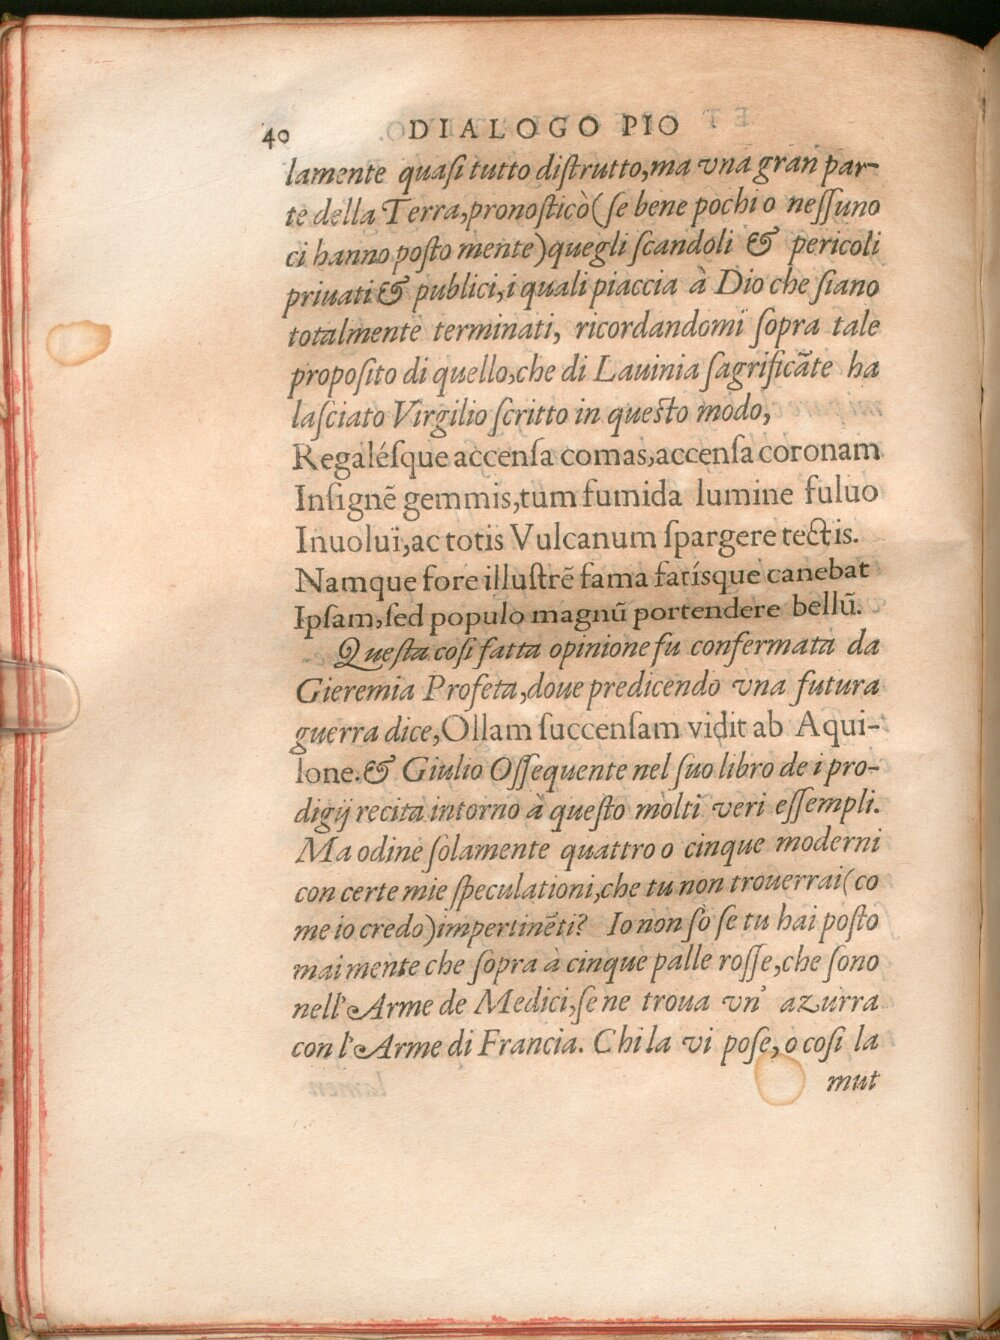 40 DIALOGO PIO
lamente quaſi tutto diſtrutto, ma vna gran par-
te della Terra, pronoſticò (ſe bene pochi o neſſuno
ci hanno poſto mente) quegli ſcandoli & pericoli
priuati & publici, i quali piaccia à Dio che ſiano
totalmente terminati, ricordandomi ſopra tale
propoſito di quello, che di Lauinia ſagrificãte ha
laſciato Virgilio ſcritto in queſto modo,
Regaléſque accenſa comas, accenſa coronam
Inſignẽ gemmis, tum fumida lumine fuluo
Inuolui, ac totis Vulcanum ſpargere tectis.
Namque fore illuſtrẽ fama fatíſque canebat
Ipſam, ſed populo magnũ portendere bellũ.
Queſta coſi fatta opinione fu confermata da
Gieremia Profeta, doue predicendo vna futura
guerra dice, Ollam ſuccenſam vidit ab Aqui-
lone. & Giulio Oſſequente nel ſuo libro de i pro-
digij recita intorno à queſto molti veri eſſempli.
Ma odine ſolamente quattro o cinque moderni
con certe mie ſpeculationi, che tu non trouerrai (co
me io credo) impertinẽti? Io non ſo ſe tu hai poſto
mai mente che ſopra à cinque palle roſſe, che ſono
nell'Arme de Medici, ſe ne troua vn' azurra
con l'Arme di Francia. Chi la vi poſe, ò coſi la
mut